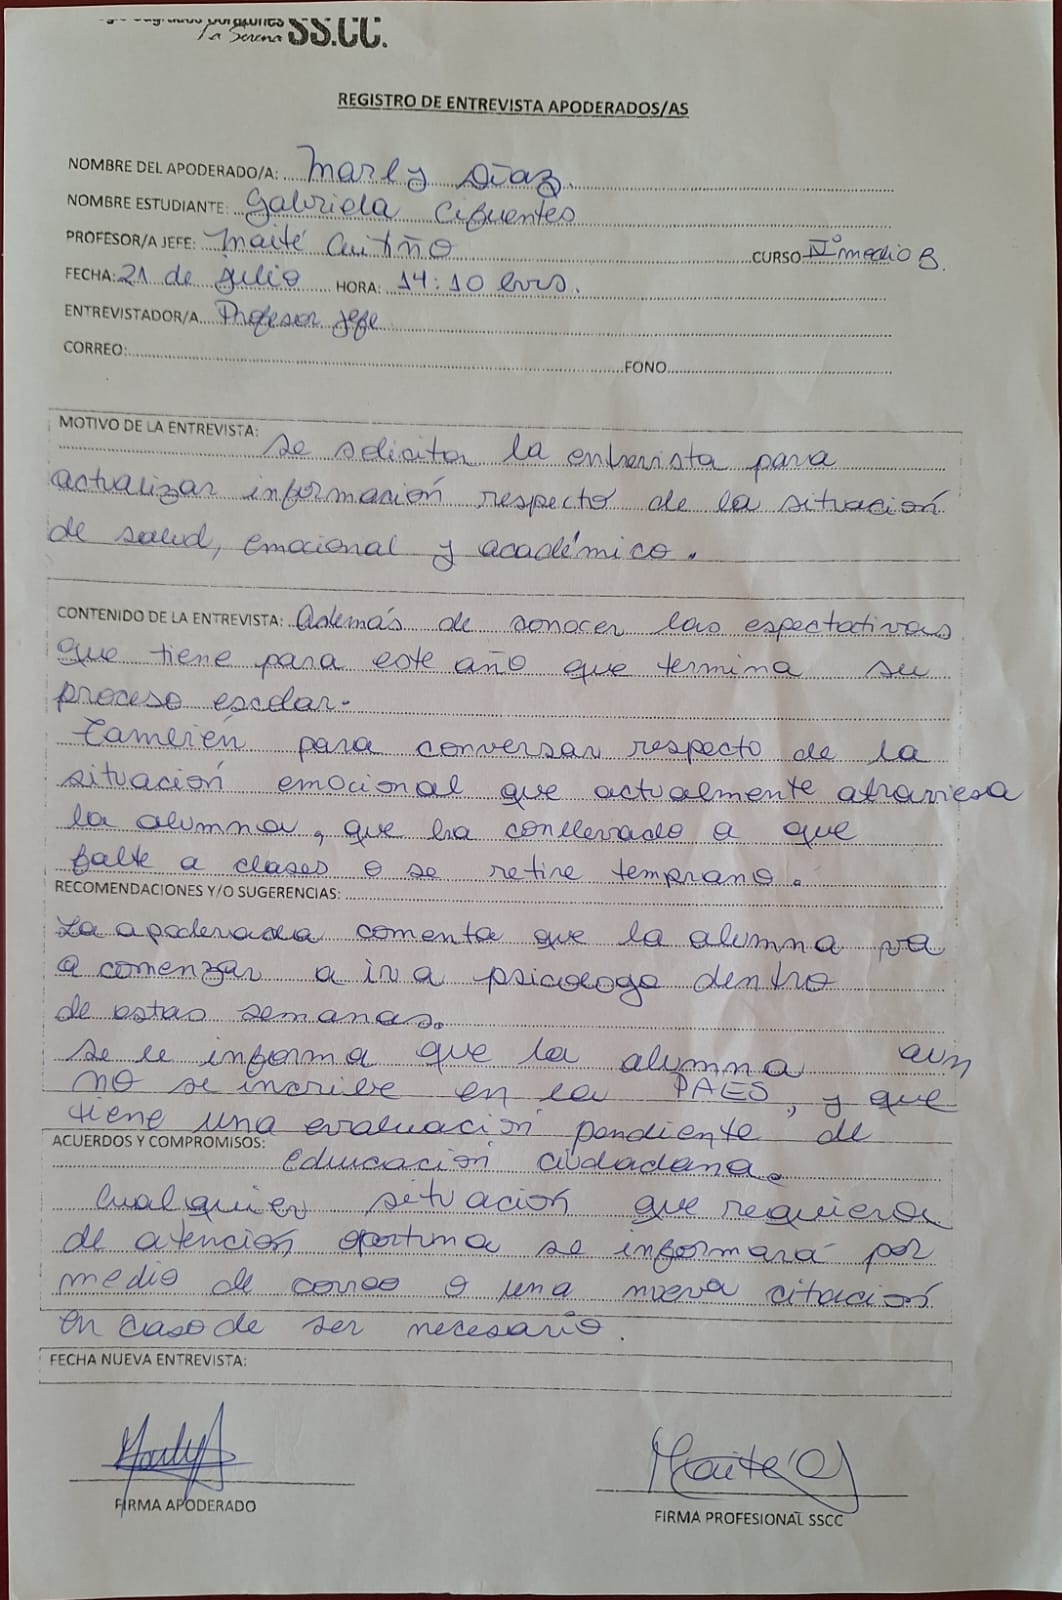 Sagrados Corazones
La Serena SS.CC.
REGISTRO DE ENTREVISTA APODERADOS/AS
NOMBRE DEL APODERADO/A: Marly Díaz.
NOMBRE ESTUDIANTE: Gabriela Cifuentes
PROFESOR/A JEFE: Maité Cuitiño CURSO IV° medio B.
FECHA: 21 de julio HORA: 14:10 hrs.
ENTREVISTADOR/A Profesor Jefe
CORREO: FONO
MOTIVO DE LA ENTREVISTA: Se solicita la entrevista para
actualizar información respecto de la situación
de salud, emocional y académico.
CONTENIDO DE LA ENTREVISTA: Además de conocer las espectativas
que tiene para este año que termina su
proceso escolar.
También para conversar respecto de la
situación emocional que actualmente atraviesa
la alumna, que ha conllevado a que
falte a clases o se retire temprano.
RECOMENDACIONES Y/O SUGERENCIAS:
La apoderada comenta que la alumna va
a comenzar a ir a psicologo dentro
de estas semanas.
Se le informa que la alumna aun
no se incribe en la PAES, y que
tiene una evaluación pendiente de
ACUERDOS Y COMPROMISOS:
educación ciudadana.
Cualquier situación que requiera
de atención oportuna se informará por
medio de correo o una nueva citación
en caso de ser necesario.
FECHA NUEVA ENTREVISTA:
Marly
Maite C
FIRMA APODERADO
FIRMA PROFESIONAL SSCC